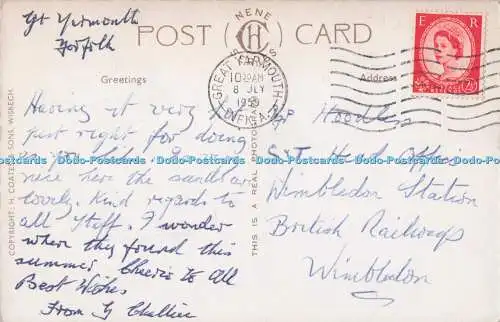 Gt Yarmouth
Norfolk
POST CARD
NENE
SERIES
Greetings
Address
GREAT YARMOUTH
10 AM
8 JLY
NORFOLK
E R
POSTAGE REVENUE
2½D
Having it very
just right for doing
as you like. Its
nice here the sands are
lovely. Kind regards to
all Staff. I wonder
where they found this
summer. Cheerio to All
Best Wishes
From G
Mr Hoodless
S & T Head Office
Wimbledon Station
British Railways
Wimbledon
COPYRIGHT: H. COATES & SONS, WISBECH.
THIS IS A REAL PHOTOGRAPH
Dodo-Postcards Dodo-Postcards Dodo-Postcards Dodo-Postcards Dodo-Postcards